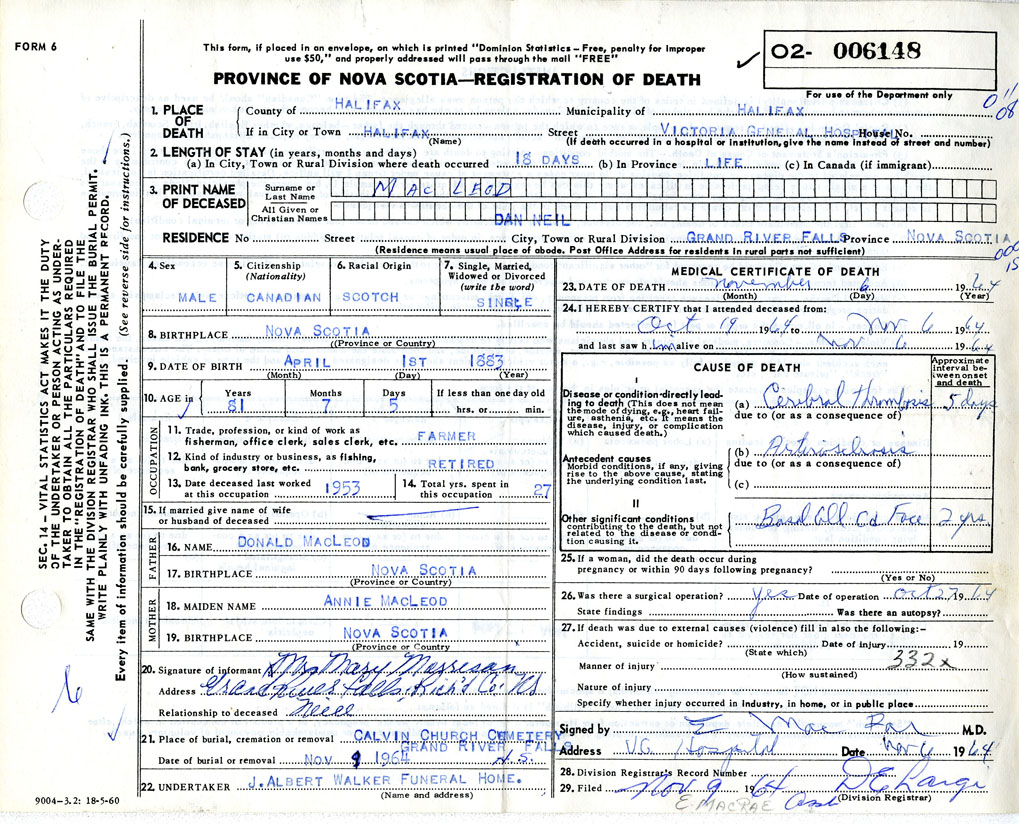 FORM 6
This form, if placed in an envelope, on which is printed "Dominion Statistics – Free, penalty for improper
use $50," and properly addressed will pass through the mail "FREE"
PROVINCE OF NOVA SCOTIA—REGISTRATION OF DEATH
O2- 006148
For use of the Department only
011
08
1. PLACE OF DEATH
County of HALIFAX Municipality of HALIFAX
If in City or Town HALIFAX Street VICTORIA GENERAL HOSPITAL House No.
(Name) (If death occurred in a hospital or institution, give the name instead of street and number)
2. LENGTH OF STAY (in years, months and days)
(a) In City, Town or Rural Division where death occurred 18 DAYS (b) In Province LIFE (c) In Canada (if immigrant)
3. PRINT NAME OF DECEASED
Surname or Last Name MAC LEOD
All Given or Christian Names DAN NEIL
RESIDENCE No Street City, Town or Rural Division GRAND RIVER FALLS Province NOVA SCOTIA
(Residence means usual place of abode. Post Office Address for residents in rural parts not sufficient)
4. Sex MALE
5. Citizenship (Nationality) CANADIAN
6. Racial Origin SCOTCH
7. Single, Married, Widowed or Divorced (write the word) SINGLE
8. BIRTHPLACE NOVA SCOTIA
(Province or Country)
9. DATE OF BIRTH APRIL 1ST 1883
(Month) (Day) (Year)
10. AGE in Years 81 Months 7 Days 5 If less than one day old hrs. or min.
OCCUPATION
11. Trade, profession or kind of work as
fisherman, office clerk, sales clerk, etc. FARMER
12. Kind of industry or business, as fishing,
bank, grocery store, etc. RETIRED
13. Date deceased last worked at this occupation 1953
14. Total yrs. spent in this occupation 27
15. If married give name of wife
or husband of deceased
FATHER
16. NAME DONALD MACLEOD
17. BIRTHPLACE NOVA SCOTIA
(Province or Country)
MOTHER
18. MAIDEN NAME ANNIE MACLEOD
19. BIRTHPLACE NOVA SCOTIA
(Province or Country)
20. Signature of informant Mrs Mary Morrison
Address Grand River Falls, Rich'd Co. NS
Relationship to deceased Neice
21. Place of burial, cremation or removal CALVIN CHURCH CEMETERY
GRAND RIVER FALLS
Date of burial or removal NOV 9 1964 N.S.
22. UNDERTAKER J. ALBERT WALKER FUNERAL HOME.
(Name and address)
MEDICAL CERTIFICATE OF DEATH
23. DATE OF DEATH November 6 1964
(Month) (Day) (Year)
24. I HEREBY CERTIFY that I attended deceased from:
Oct 19 1964 to Nov 6 1964
and last saw him alive on Nov 6 1964
CAUSE OF DEATH
Approximate interval between onset and death
I
Disease or condition directly leading to death (This does not mean the mode of dying, e.g., heart failure, asthenia, etc. It means the disease, injury, or complication which caused death.)
(a) Cerebral Thrombosis 5 days
due to (or as a consequence of)
Antecedent causes
Morbid conditions, if any, giving rise to the above cause, stating the underlying condition last.
(b) Arteriosclerosis
due to (or as a consequence of)
(c)
II
Other significant conditions
contributing to the death, but not related to the disease or condition causing it.
Basal Cell Ca Face 2 yrs.
25. If a woman, did the death occur during
pregnancy or within 90 days following pregnancy?
(Yes or No)
26. Was there a surgical operation? yes Date of operation Oct 27 1964
State findings Was there an autopsy?
27. If death was due to external causes (violence) fill in also the following:–
Accident, suicide or homicide? Date of injury 19
(State which)
332x
Manner of injury
(How sustained)
Nature of injury
Specify whether injury occurred in industry, in home, or in public place
Signed by E MacRae M.D.
Address V.G. Hospital Date Nov 6 1964
28. Division Registrar's Record Number
29. Filed Nov 9 1964
(Division Registrar)
E. MACRAE
SEC. 14 – VITAL STATISTICS ACT MAKES IT THE DUTY
OF THE UNDERTAKER OR PERSON ACTING AS UNDER-
TAKER TO OBTAIN ALL THE PARTICULARS REQUIRED
IN THE "REGISTRATION OF DEATH" AND TO FILE THE
SAME WITH THE DIVISION REGISTRAR WHO SHALL ISSUE THE BURIAL PERMIT.
WRITE PLAINLY WITH UNFADING INK. THIS IS A PERMANENT RECORD.
Every item of information should be carefully supplied. (See reverse side for instructions.)
9004-3.2: 18-5-60